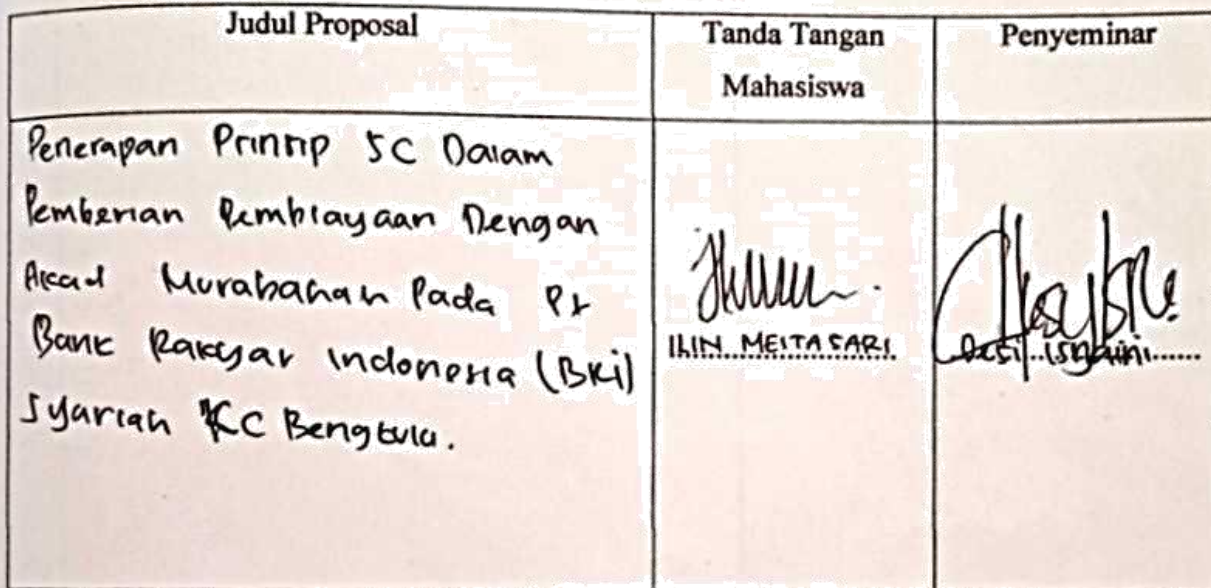 Judul Proposal
Tanda Tangan
Mahasiswa
Penyeminar
Penerapan Prinsip 5C Dalam
Pemberian Pembiayaan Dengan
Akad Murabahah Pada PT
Bank Rakyat Indonesia (BRI)
Syariah KC Bengkulu.
ILIN MEITASARI
Desi Isnaini